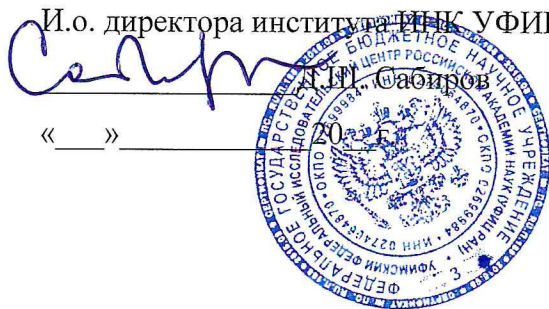 И.о. директора института ИНК УФИ
Д.Ш. Сабиров
«___»______________20__ г.
ФЕДЕРАЛЬНОЕ ГОСУДАРСТВЕННОЕ БЮДЖЕТНОЕ НАУЧНОЕ УЧРЕЖДЕНИЕ
УФИМСКИЙ ФЕДЕРАЛЬНЫЙ ИССЛЕДОВАТЕЛЬСКИЙ ЦЕНТР РОССИЙСКОЙ АКАДЕМИИ НАУК (УФИЦ РАН)
ОКПО 02699984 • ИНН 0274064870
3